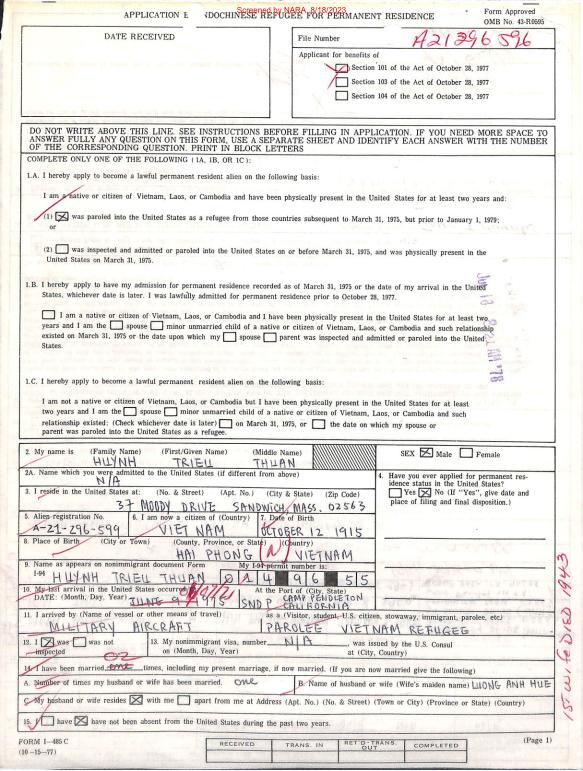 Screened by NARA, 8/18/2023
APPLICATION B NDOCHINESE REFUGEE FOR PERMANENT RESIDENCE
Form Approved
OMB No. 43-R0595
DATE RECEIVED
File Number A21296596
Applicant for benefits of
Section 101 of the Act of October 28, 1977
Section 103 of the Act of October 28, 1977
Section 104 of the Act of October 28, 1977
DO NOT WRITE ABOVE THIS LINE. SEE INSTRUCTIONS BEFORE FILLING IN APPLICATION. IF YOU NEED MORE SPACE TO
ANSWER FULLY ANY QUESTION ON THIS FORM, USE A SEPARATE SHEET AND IDENTIFY EACH ANSWER WITH THE NUMBER
OF THE CORRESPONDING QUESTION. PRINT IN BLOCK LETTERS
COMPLETE ONLY ONE OF THE FOLLOWING (1A, 1B, OR 1C):
1.A. I hereby apply to become a lawful permanent resident alien on the following basis:
I am a native or citizen of Vietnam, Laos, or Cambodia and have been physically present in the United States for at least two years and:
(1) was paroled into the United States as a refugee from those countries subsequent to March 31, 1975, but prior to January 1, 1979;
or
(2) was inspected and admitted or paroled into the United States on or before March 31, 1975, and was physically present in the
United States on March 31, 1975.
1.B. I hereby apply to have my admission for permanent residence recorded as of March 31, 1975 or the date of my arrival in the United
States, whichever date is later. I was lawfully admitted for permanent residence prior to October 28, 1977.
I am a native or citizen of Vietnam, Laos, or Cambodia and I have been physically present in the United States for at least two
years and I am the spouse minor unmarried child of a native or citizen of Vietnam, Laos, or Cambodia and such relationship
existed on March 31, 1975 or the date upon which my spouse parent was inspected and admitted or paroled into the United
States.
1.C. I hereby apply to become a lawful permanent resident alien on the following basis:
I am not a native or citizen of Vietnam, Laos, or Cambodia but I have been physically present in the United States for at least
two years and I am the spouse minor unmarried child of a native or citizen of Vietnam, Laos, or Cambodia and such
relationship existed: (Check whichever date is later) on March 31, 1975, or the date on which my spouse or
parent was paroled into the United States as a refugee.
2. My name is (Family Name) (First/Given Name) (Middle Name)
HUYNH TRIEU THUAN
SEX Male Female
2A. Name which you were admitted to the United States (if different from above)
N/A
3. I reside in the United States at: (No. & Street) (Apt. No.) (City & State) (Zip Code)
37 MOODY DRIVE SANDWICH, MASS. 02563
4. Have you ever applied for permanent res-
idence status in the United States?
Yes No (If "Yes", give date and
place of filing and final disposition.)
5. Alien registration No. 6. I am now a citizen of (Country) 7. Date of Birth
A-21-296-599 VIET NAM OCTOBER 12 1915
8. Place of Birth (City or Town) (County, Province, or State) (Country)
HAI PHONG (N) VIETNAM
9. Name as appears on nonimmigrant document Form My I-94 permit number is:
I-94 HUYNH TRIEU THUAN 014 96 55
10. My last arrival in the United States occurred At the Port of (City, State)
DATE: (Month, Day, Year) JUNE 9 1975 SND P CAMP PENDLETON
CALIFORNIA
11. I arrived by (Name of vessel or other means of travel) as a (Visitor, student, U.S. citizen, stowaway, immigrant, parolee, etc.)
MILITARY AIRCRAFT PAROLEE VIETNAM REFUGEE
12. I was was not 13. My nonimmigrant visa, number N/A, was issued by the U.S. Consul
inspected on (Month, Day, Year) at (City, Country)
14. I have been married one 02 times, including my present marriage, if now married. (If you are now married give the following)
A. Number of times my husband or wife has been married. one B. Name of husband or wife (Wife's maiden name) LUONG ANH HUE
C. My husband or wife resides with me apart from me at Address (Apt. No.) (No. & Street) (Town or City) (Province or State) (Country)
15. I have have not been absent from the United States during the past two years.
1ST WIFE DIED 1943
FORM I-485 C
(10-15-77)
RECEIVED TRANS. IN RET'D-TRANS. OUT COMPLETED
(Page 1)